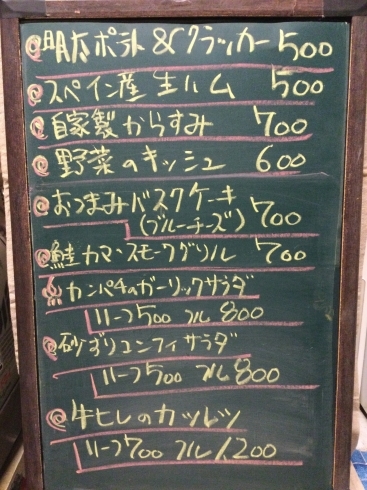 明太ポテト&クラッカー 500
スペイン産 生ハム 500
自家製からすみ 700
野菜のキッシュ 600
おつまみバスクケーキ
(ブルーチーズ) 700
鮭カマ、スモークグリル 700
カンパチのガーリックサラダ
ハーフ500 フル800
砂ずりコンフィサラダ
ハーフ500 フル800
牛ヒレのカツレツ
ハーフ700 フル1200